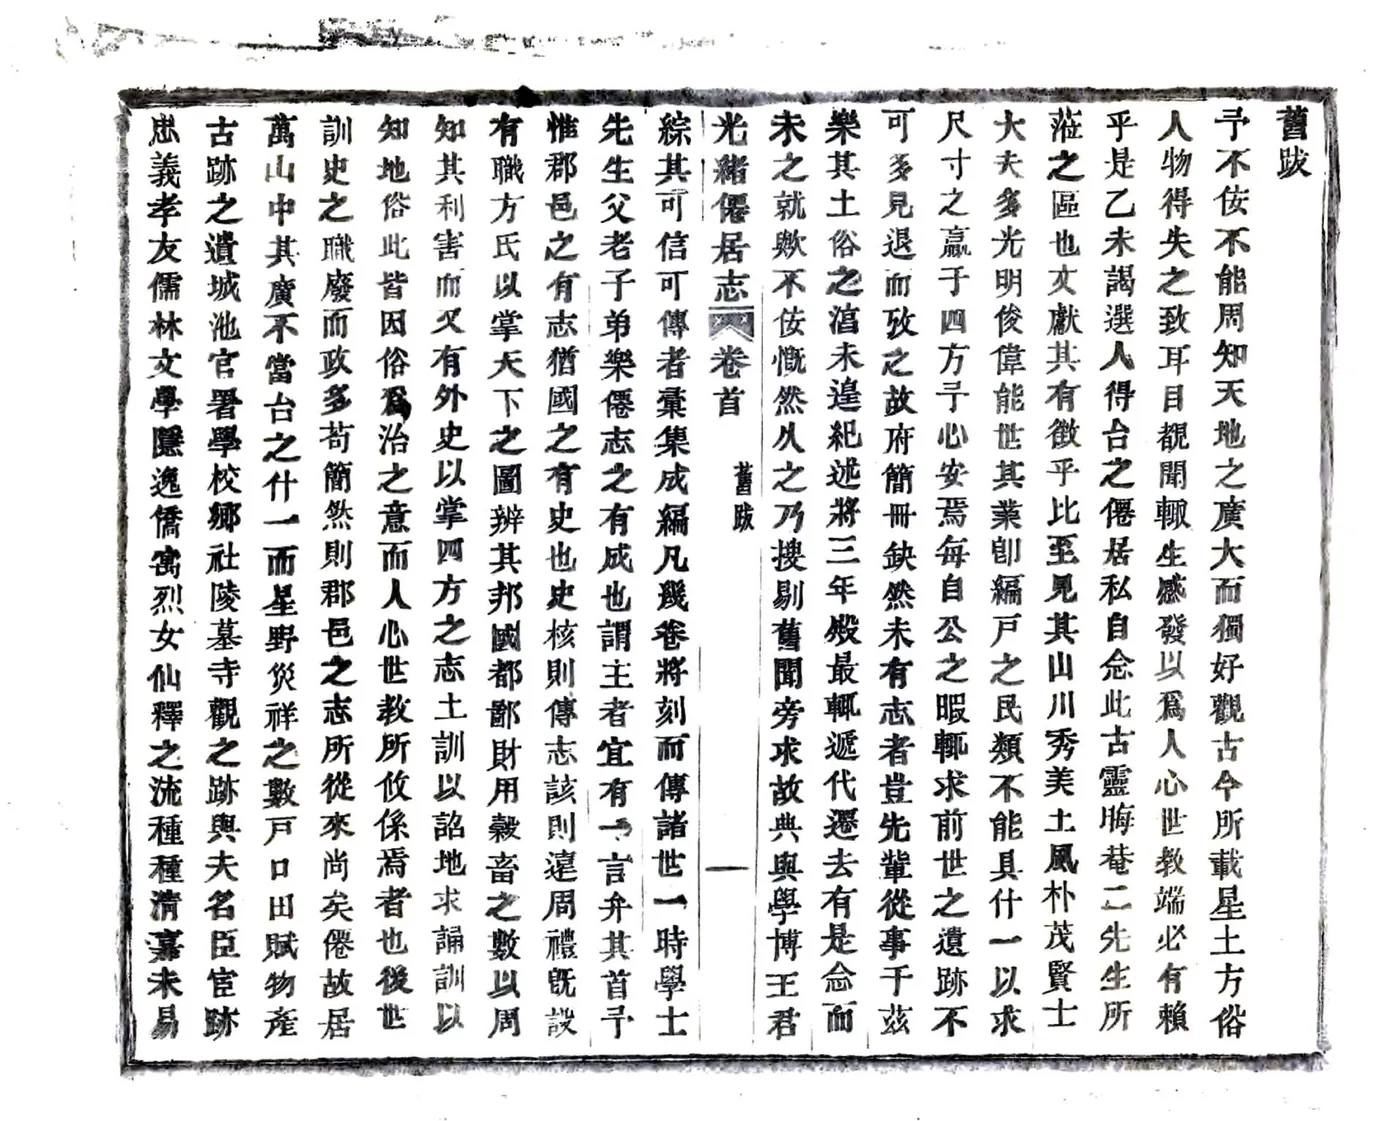 舊跋
予不佞不能周知天地之廣大而獨好觀古今所載星土方俗
人物得失之致耳目覩聞輒生感發以爲人心世教端必有賴
乎是乙未謁選人得台之僊居私自念此古靈晦菴二先生所
蒞之區也文獻其有徵乎比至見其山川秀美土風朴茂賢士
大夫多光明俊偉能世其業卽編戶之民類不能具什一以求
尺寸之贏于四方予心安焉每自公之暇輒求前世之遺跡不
可多見退而攷之故府簡冊缺然未有志者豈先輩從事于茲
樂其土俗之湻未遑紀述將三年殿最輒遞代遷去有是念而
未之就歟不佞慨然久之乃搜剔舊聞旁求故典與學博王君
光緒僊居志 卷首 舊跋 一
綜其可信可傳者彙集成編凡幾卷將刻而傳諸世一時學士
先生父老子弟樂僊志之有成也謂主者宜有一言弁其首予
惟郡邑之有志猶國之有史也史核則傳志該則遠周禮旣設
有職方氏以掌天下之圖辨其邦國都鄙財用穀畜之數以周
知其利害而又有外史以掌四方之志土訓以詔地求誦訓以
知地俗此皆因俗爲治之意而人心世教所攸係焉者也後世
訓史之職廢而政多苟簡然則郡邑之志所從來尚矣僊故居
萬山中其廣不當台之什一而星野災祥之數戸口田賦物產
古跡之遺城池官署學校鄉社陵墓寺觀之跡與夫名臣宦跡
忠義孝友儒林文學隱逸僑寓烈女仙釋之流種種清嘉未易